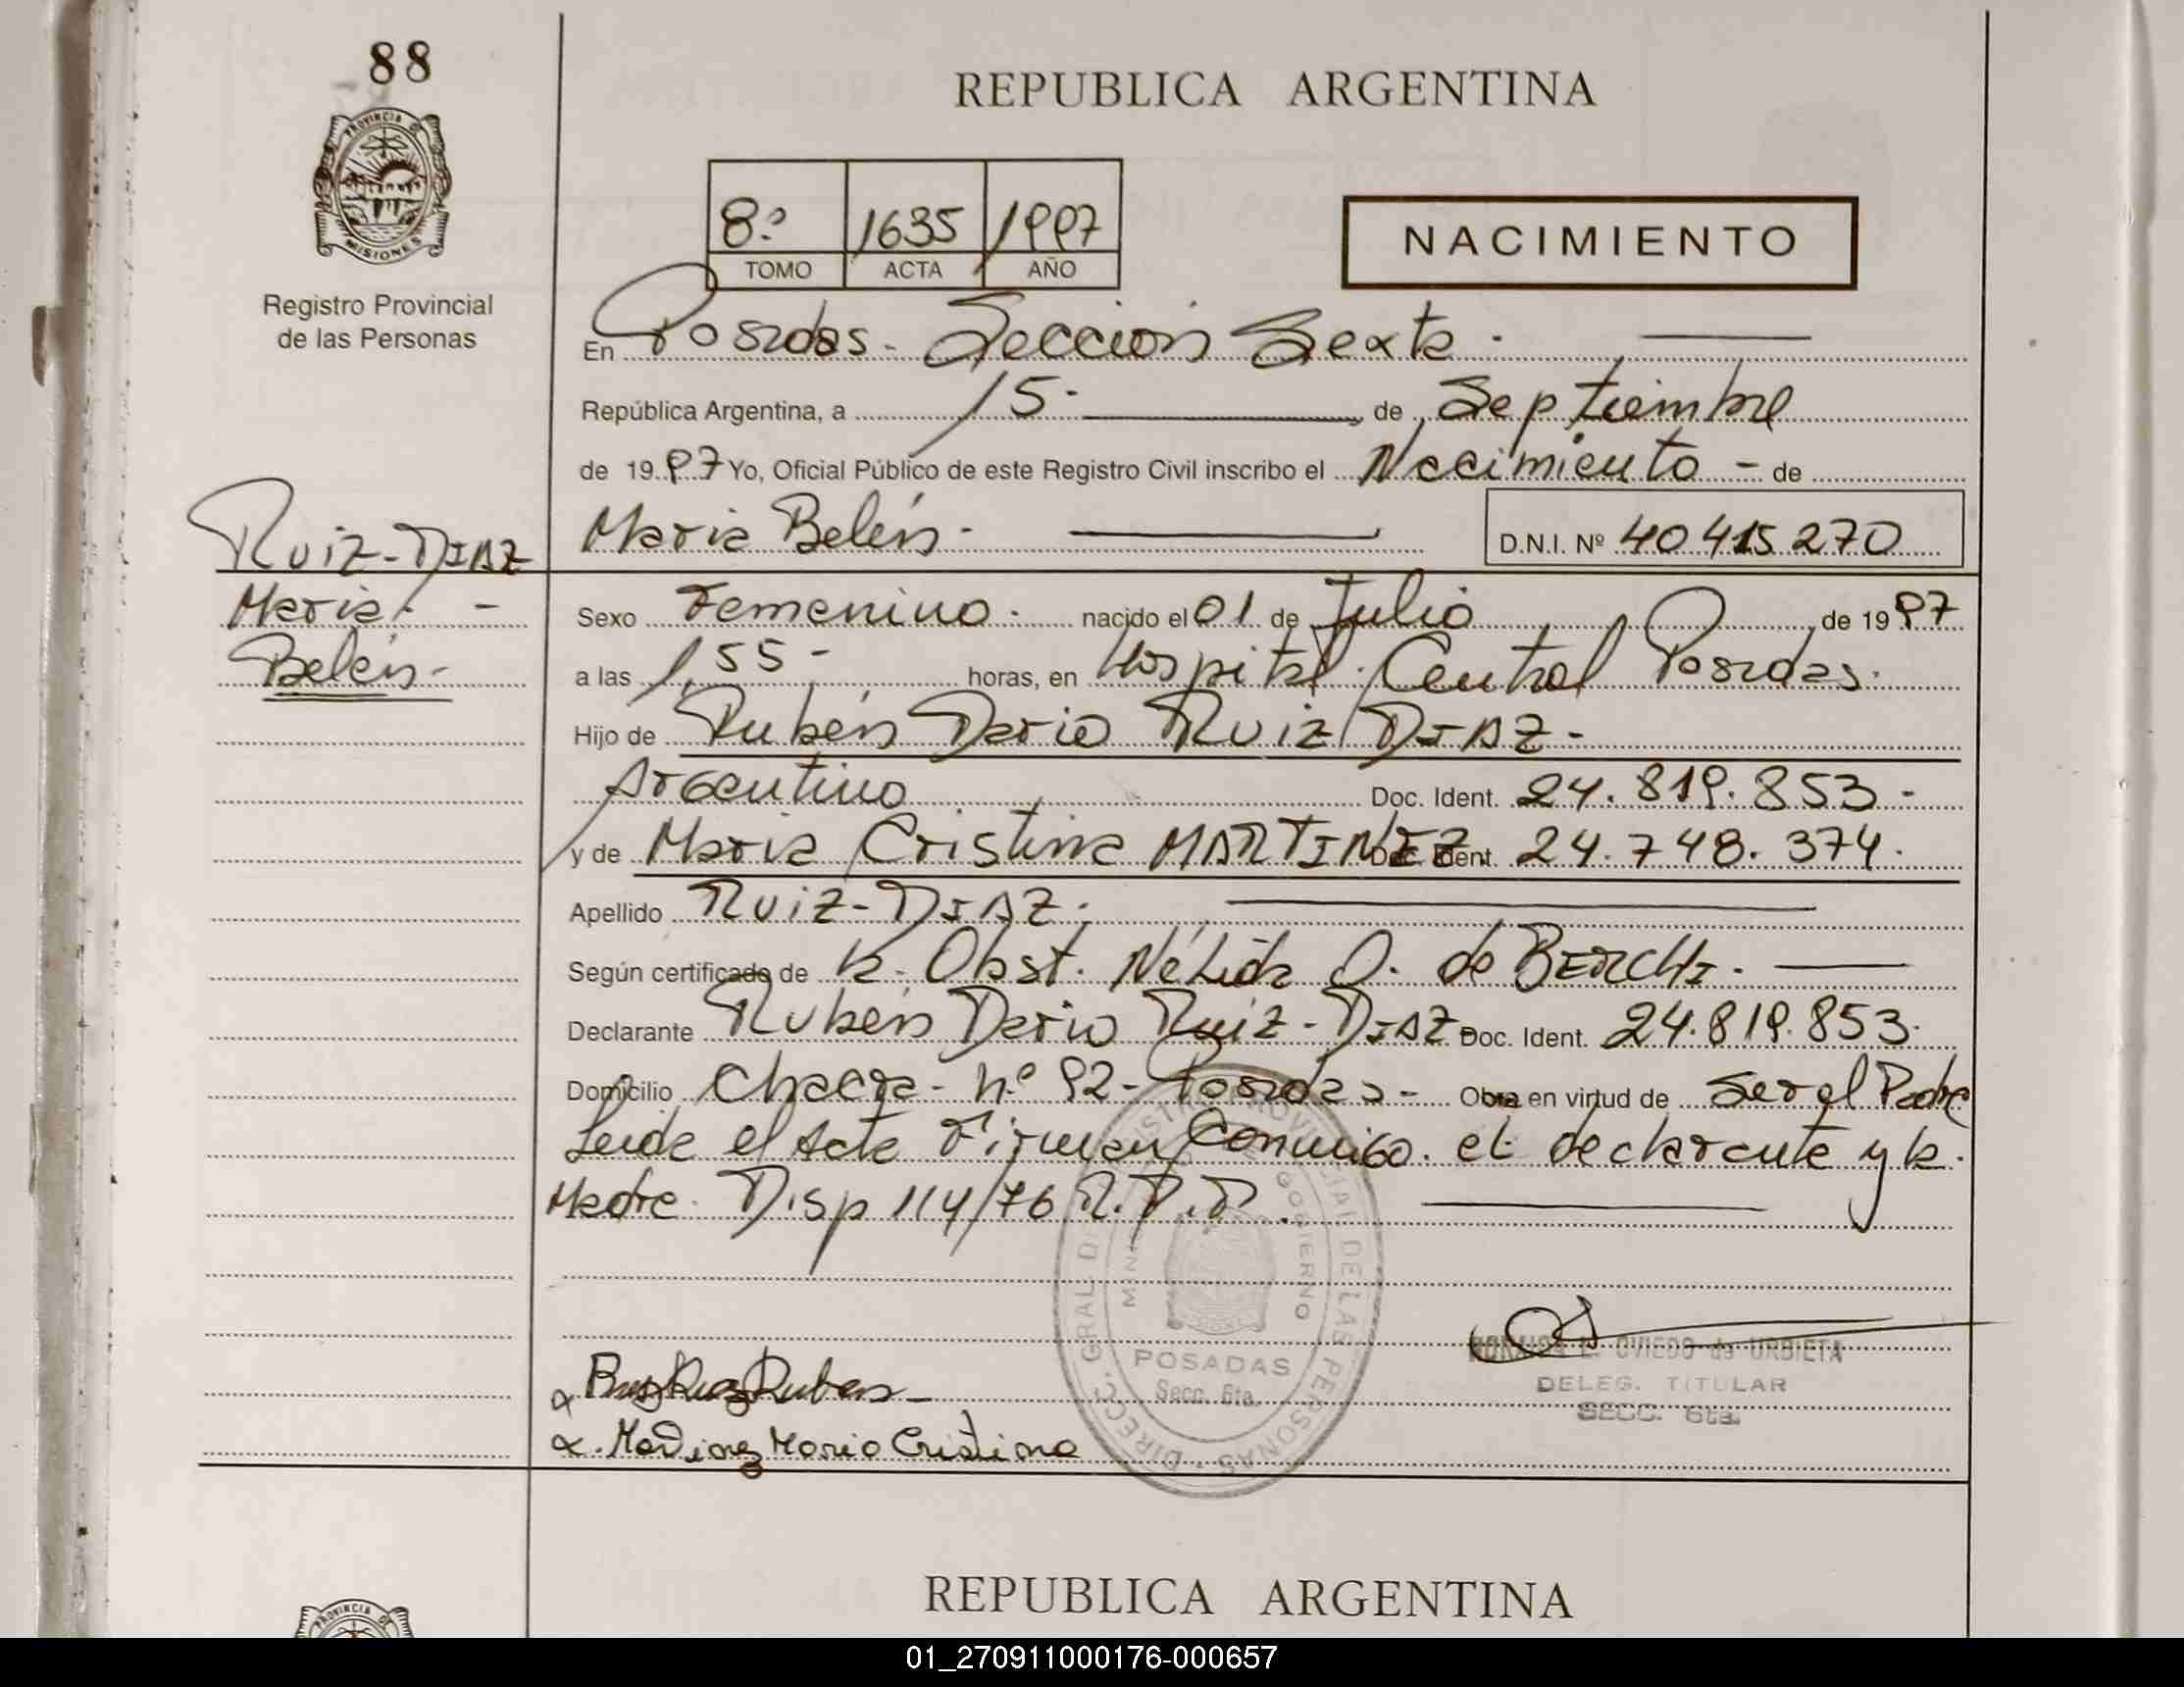 88
REPUBLICA ARGENTINA
PROVINCIA DE
MISIONES
8º 1635 1997
TOMO ACTA AÑO
NACIMIENTO
Registro Provincial
de las Personas
En Posadas - Sección Sexta -
República Argentina, a 15 - de Septiembre
de 1997 Yo, Oficial Público de este Registro Civil inscribo el Nacimiento - de
Maria Belén - D.N.I. Nº 40415270
Ruiz-DIAZ
Maria -
Belén -
Sexo Femenino - nacido el 01 de Julio de 1997
a las 1,55 - horas, en Hospital Central Posadas.
Hijo de Rubén Dario Ruiz DIAZ -
Argentino Doc. Ident. 24.819.853 -
y de Maria Cristina MARTINEZ Doc. Ident. 24.748.374.
Apellido Ruiz-DIAZ.
Según certificado de la Obst. Nélida O. de
Declarante Rubén Dario Ruiz-DIAZ Doc. Ident. 24.819.853.
Domicilio Chacra - nº 92 - Posadas - Obra en virtud de Ser el Padre
Leida el Acta Firman Conmigo el declarante y la
Madre. Disp 114/76 R.P.P.
DIRECC. GRAL. DEL REGISTRO PROVINCIAL DE LAS PERSONAS
GOBIERNO
POSADAS
Secc. 6ta.
L. OVIEDO de URBIETA
DELEG. TITULAR
SECC. 6ta.
Ruben
Maria Cristina
REPUBLICA ARGENTINA
PROVINCIA DE
01_270911000176-000657